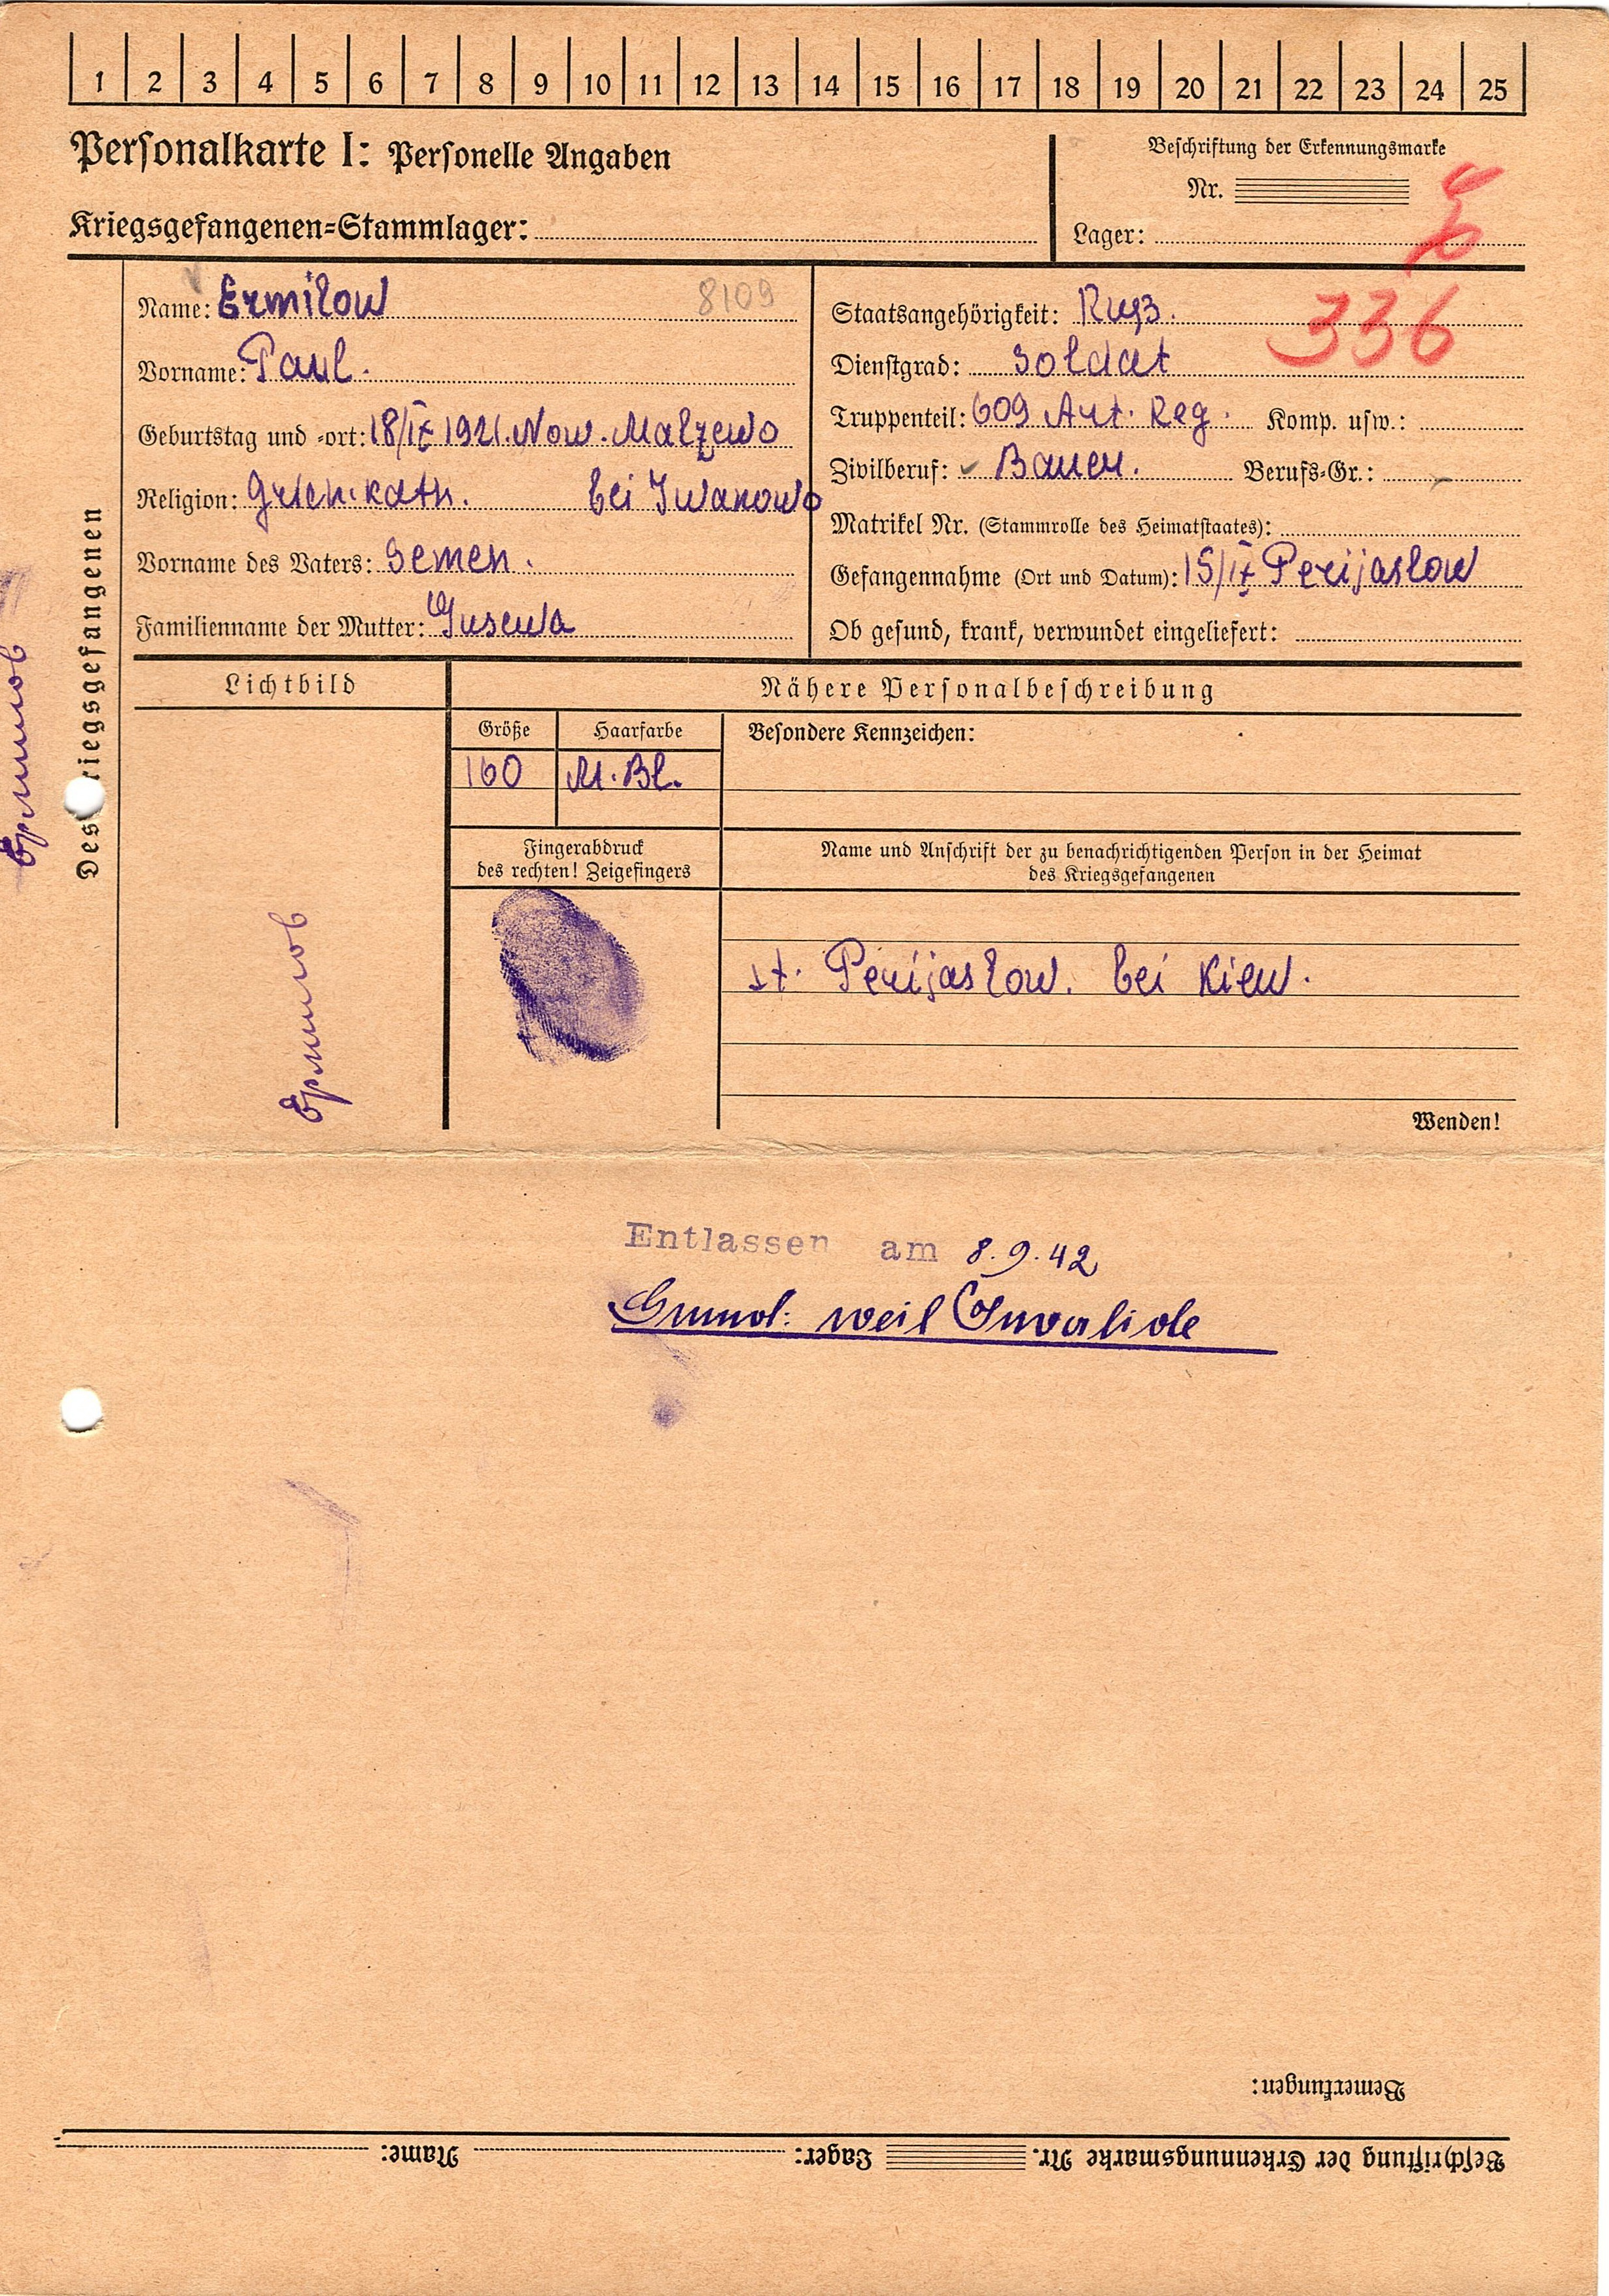 1 2 3 4 5 6 7 8 9 10 11 12 13 14 15 16 17 18 19 20 21 22 23 24 25
Personalkarte I: Personelle Angaben
Beschriftung der Erkennungsmarke
Nr.
Kriegsgefangenen=Stammlager:
Lager:
336
Des Kriegsgefangenen
Name: Ermilow 8109
Vorname: Paul.
Geburtstag und =ort: 18/IX 1921. Now. Malzewo
Religion: Griech. kath. bei Iwanowo
Vorname des Vaters: Semen.
Familienname der Mutter: Gusewa
Staatsangehörigkeit: Russ.
Dienstgrad: Soldat
Truppenteil: 609 Art. Reg. Komp. usw.:
Zivilberuf: Bauer. Berufs=Gr.:
Matrikel Nr. (Stammrolle des Heimatstaates):
Gefangennahme (Ort und Datum): 15/IX Perijaslow
Ob gesund, krank, verwundet eingeliefert:
Lichtbild
Nähere Personalbeschreibung
Größe Haarfarbe Besondere Kennzeichen:
160 M. Bl.
Fingerabdruck
des rechten! Zeigefingers
Name und Anschrift der zu benachrichtigenden Person in der Heimat
des Kriegsgefangenen
st. Perijaslow. bei Kiew.
Ермилов
Ермилов
Wenden!
Entlassen am 8.9.42
Grund: weil Invalide
Bemerkungen:
Beschriftung der Erkennungsmarke Nr. Lager: Name: